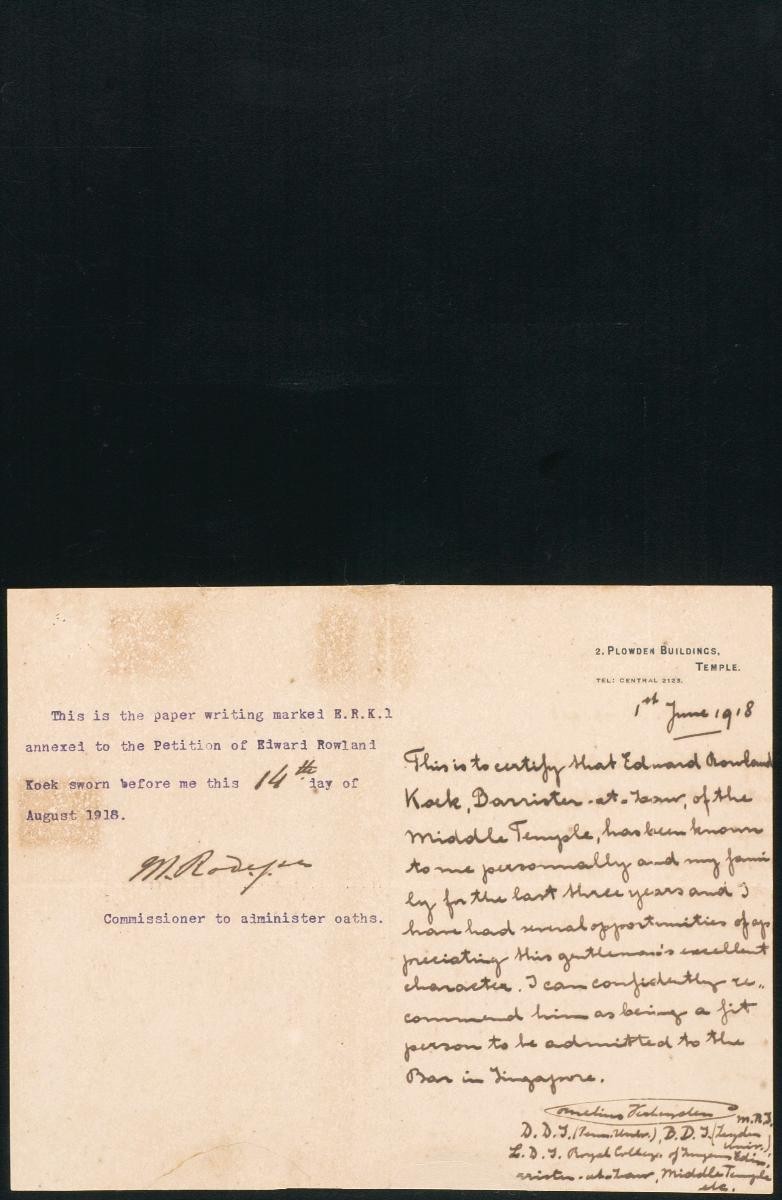 This is the paper writing marked E.R.K.1
annexed to the Petition of Edward Rowland
Koek sworn before me this 14th day of
August 1918.
Commissioner to administer oaths.
2, PLOWDEN BUILDINGS,
TEMPLE.
TEL: CENTRAL 2123.
1st June 1918
This is to certify that Edward Rowland
Koek, Barrister-at-Law, of the
Middle Temple, has been known
to me personnally and my fami
ly for the last three years and I
have had several opportunities of ap
preciating this gentleman's excellent
character. I can confidently re..
commend him as being a fit
person to be admitted to the
Bar in Singapore.
D.D.S. (Penn. Univ.), D.D.S. (Leyden
Univ.)
L.D.S. Royal College of Surgeons Edin,
rrister-at-Law, Middle Temple
etc.